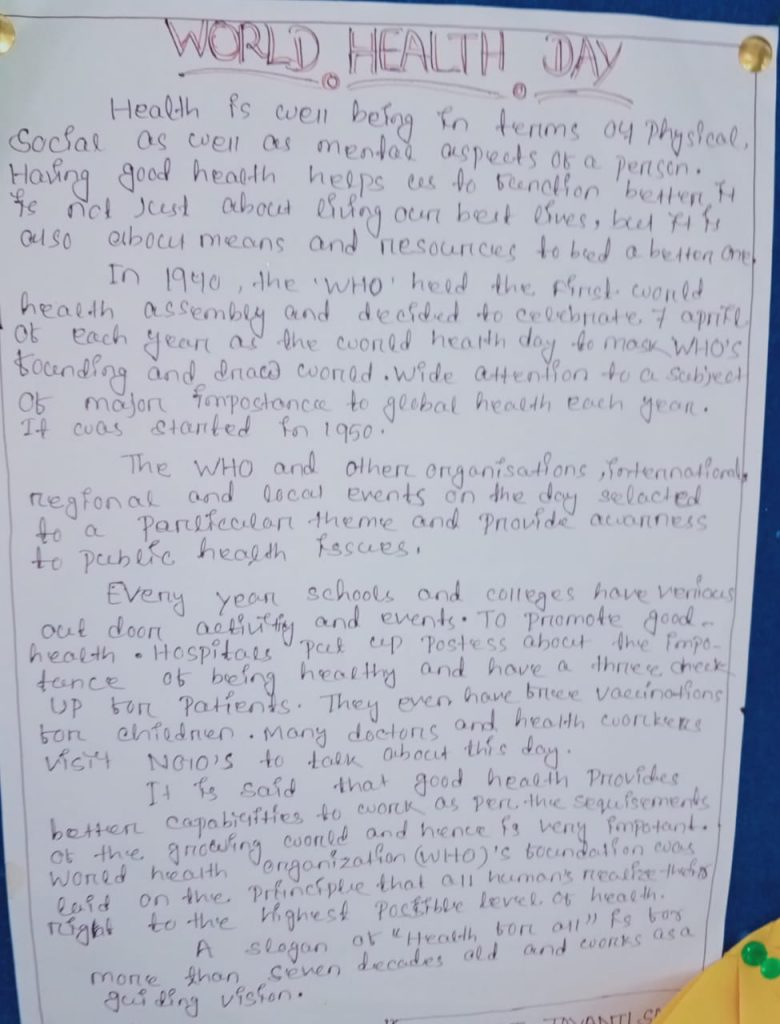 WORLD HEALTH DAY
Health is well being in terms of physical,
Social as well as mental aspects of a person.
Having good health helps us to function better, It
is not just about living our best lives, but it is
also about means and resources to bud a better one.
In 1940, the 'WHO' held the first world
health assembly and decided to celebrate 7 april
of each year as the world health day to mask WHO'S
founding and draw world. wide attention to a subject
Of major impostance to global health each year.
It was started in 1950.
The WHO and other organisations, international,
regional and local events on the day selacted
to a particular theme and provide awarness
to public health issues.
Every year schools and colleges have verious
out door activity and events. To promote good-
health. Hospitals put up postess about the impo-
tance of being healthy and have a three check
UP for patients. They even have free vaccinations
for children. Many doctors and health workers
visit NGIO'S to talk about this day.
It is said that good health provides
better capabilities to work as per the sequisements
of the growing world and hence is very impotant.
World health organization (WHO)'s foundation was
laid on the principle that all humans realize their
right to the highest possible level of health.
A slogan of "Health for all" is for
more than seven decades old and works as a
guiding vision.